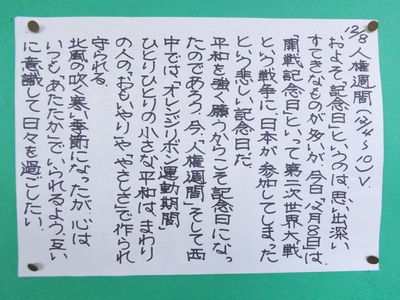 12/8 人権週間(12/4~10)V.
およそ「記念日」というのは、思い出深い
すてきなものが多いが、今日「12月8日」は
「開戦記念日」といって第二次世界大戦
という戦争に日本が参加してしまった
という悲しい記念日だ。
平和を強く願うからこそ記念日になっ
たのであろう。今、「人権週間」そして西
中では、「オレンジリボン運動期間」
ひとりひとりの小さな平和は、まわり
の人の「おもいやり」や「やさしさ」で作られ
守られる。
北風の吹く寒い季節になったが、心は
いつも「あたたか」でいられるよう、互い
に意識して日々を過ごしたい。